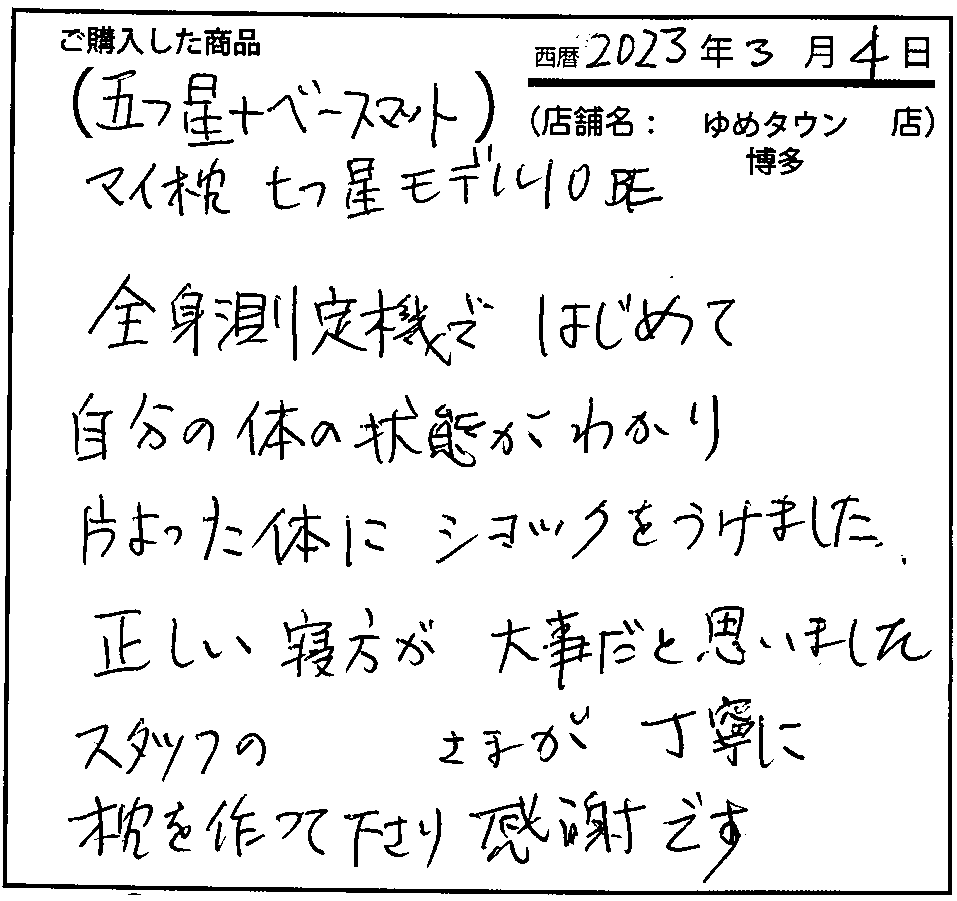 ご購入した商品
西暦 2023 年 3 月 4 日
(五つ星+ベースマット)
(店舗名: ゆめタウン 店)
博多
マイ枕 七つ星モデル40 BE
全身測定機で はじめて
自分の体の状態がわかり
片よった体に ショックをうけました.
正しい寝方が 大事だと思いました
スタッフの さまが 丁寧に
枕を作って下さり 感謝です